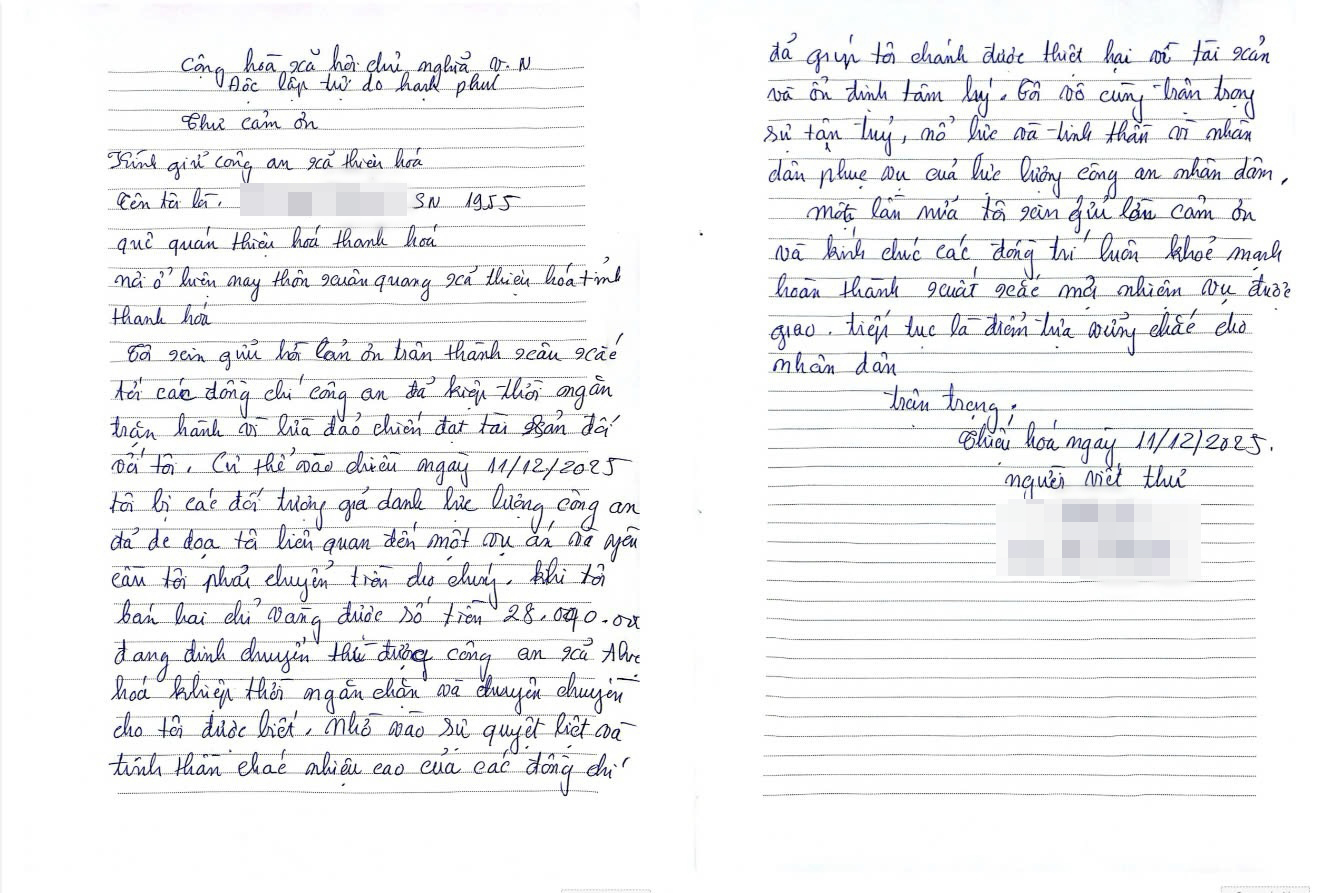 Cộng hoà xã hôi chủ nghĩa V.N
Độc lập tự do hạnh phúc
Thư cảm ơn
Kính giử công an xã thiệu hoá
Tên tôi là. SN 1955
quê quán thiệu hoá thanh hoá
nơi ở hiện nay thôn xuân quang xã thiệu hoá tỉnh
thanh hoá
Tôi xin giửi lời cản ơn trân thành xâu xắc
tới các đồng chí công an đả kiệp thời ngăn
trặn hành vi lừa đảo chiến đạt tài sản đối
với tôi. Cụ thể vào chiều ngày 11/12/2025
tôi bị các đối tượng giả danh lực lượng công an
đả đe doạ tôi liên quan đến một vụ án và yêu
cầu tôi phải chuyển tiền cho chúng. khi tôi
bán hai chỉ vàng được số tiền
đang định chuyển thì được công an xã
hoá khiệp thời ngăn chặn và chuyên chuyền
cho tôi được biết. Nhờ vào sự quyết liệt và
tinh thần chác nhiệu cao của các đồng chí
đả giúp tôi chánh được thiệt hại về tài xản
và ổn định tâm lý. Tôi vô cùng trân trọng
sự tận tuỵ, nổ lực và tinh thần vì nhân
dân phục vụ cuả lực lượng công an nhân dân.
một lần nửa tôi xin gửi lần cảm ơn
và kính chúc các đồng trí luôn khoẻ mạnh
hoàn thành xuất xắc mọi nhiện vụ được
giao. tiếp tục là điểm tựa vửng chắc cho
nhân dân
trân trọng.
Thiệu hoá ngày 11/12/2025.
người viết thư